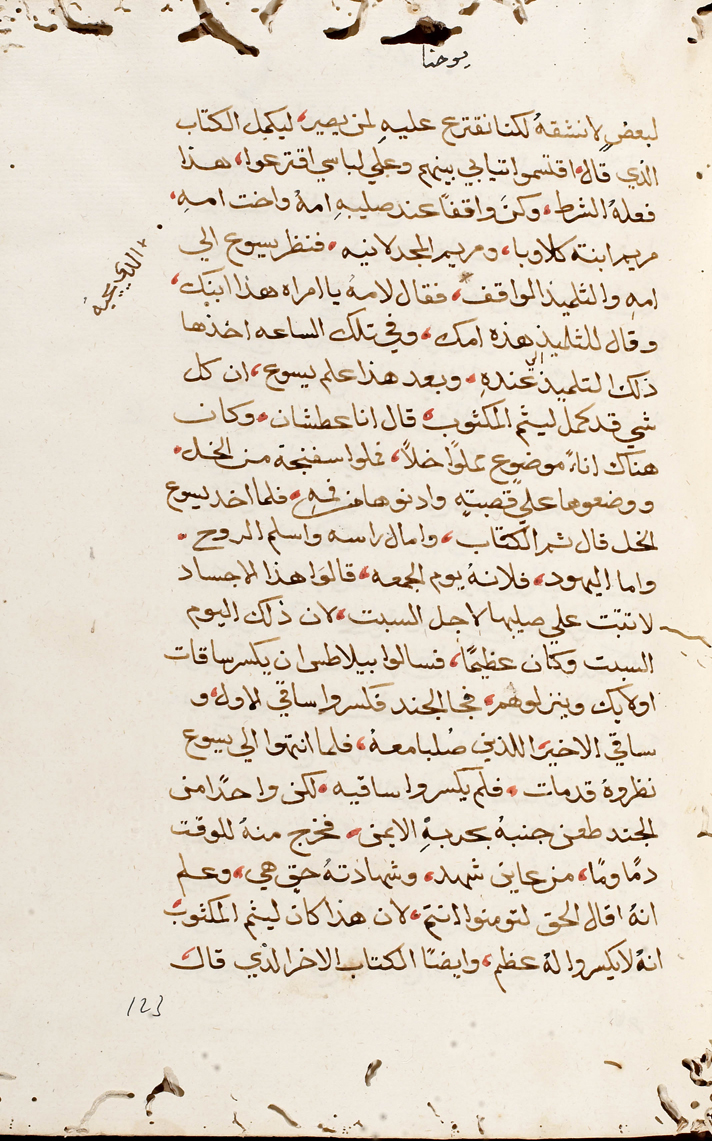 يوحنا
لبعض لا نشقه لكنا نقترع عليه لمن يصير، ليكمل الكتاب
الذي قال، اقتسموا تيابي بينهم وعلي لباسي اقترعوا، هذا
فعله الشرط، وكن واقفاً عند صليبه امه واخت امه،
مريم ابنة كلاوبا، ومريم المجدلانيه، فنظر يسوع الي
امه والتلميذ الواقف، فقال لامه يا امراه هذا ابنك،
الدي يحبه
وقال للتلميذ هذه امك، وفي تلك الساعه اخذها
ذلك التلميذ الي عنده، وبعد هذا علم يسوع، ان كل
شي قد كمل ليتم المكتوب، قال انا عطشان، وكان
هناك اناءً موضوع مملوًا خلاً، فملوا سفنجة من الخل،
ووضعوها علي قصبته وادنوها من فيه، فلما اخد يسوع
الخل قال تم الكتاب، وامال راسه واسلم الروح،
واما اليهود، فلانه يوم الجمعه، قالوا هذا الاجساد
لا تبت علي صليبها لاجل السبت، لان ذلك اليوم
السبت وكان عظيمًا، فسالوا بيلاطس ان يكسر ساقات
اولايك وينزلوهم، فجا الجند فكسروا ساقي الاول، و
ساقي الاخير، اللذين صلبا معه، فلما انتهوا الي يسوع
نظروه قدمات، فلم يكسروا ساقيه، لكن واحدًا من
الجند طعن جنبه بحربةٍ الايمن، فخرج منه للوقت
دمًا ومًا، من عاين شهد، وشهادته حق هي، وعلم
انه اقال الحق لتومنوا انتم، لان هذا كان ليتم المكتوب
انه لا يكسروا له عظم، وايضًا الكتاب الاخر الذي قال
123